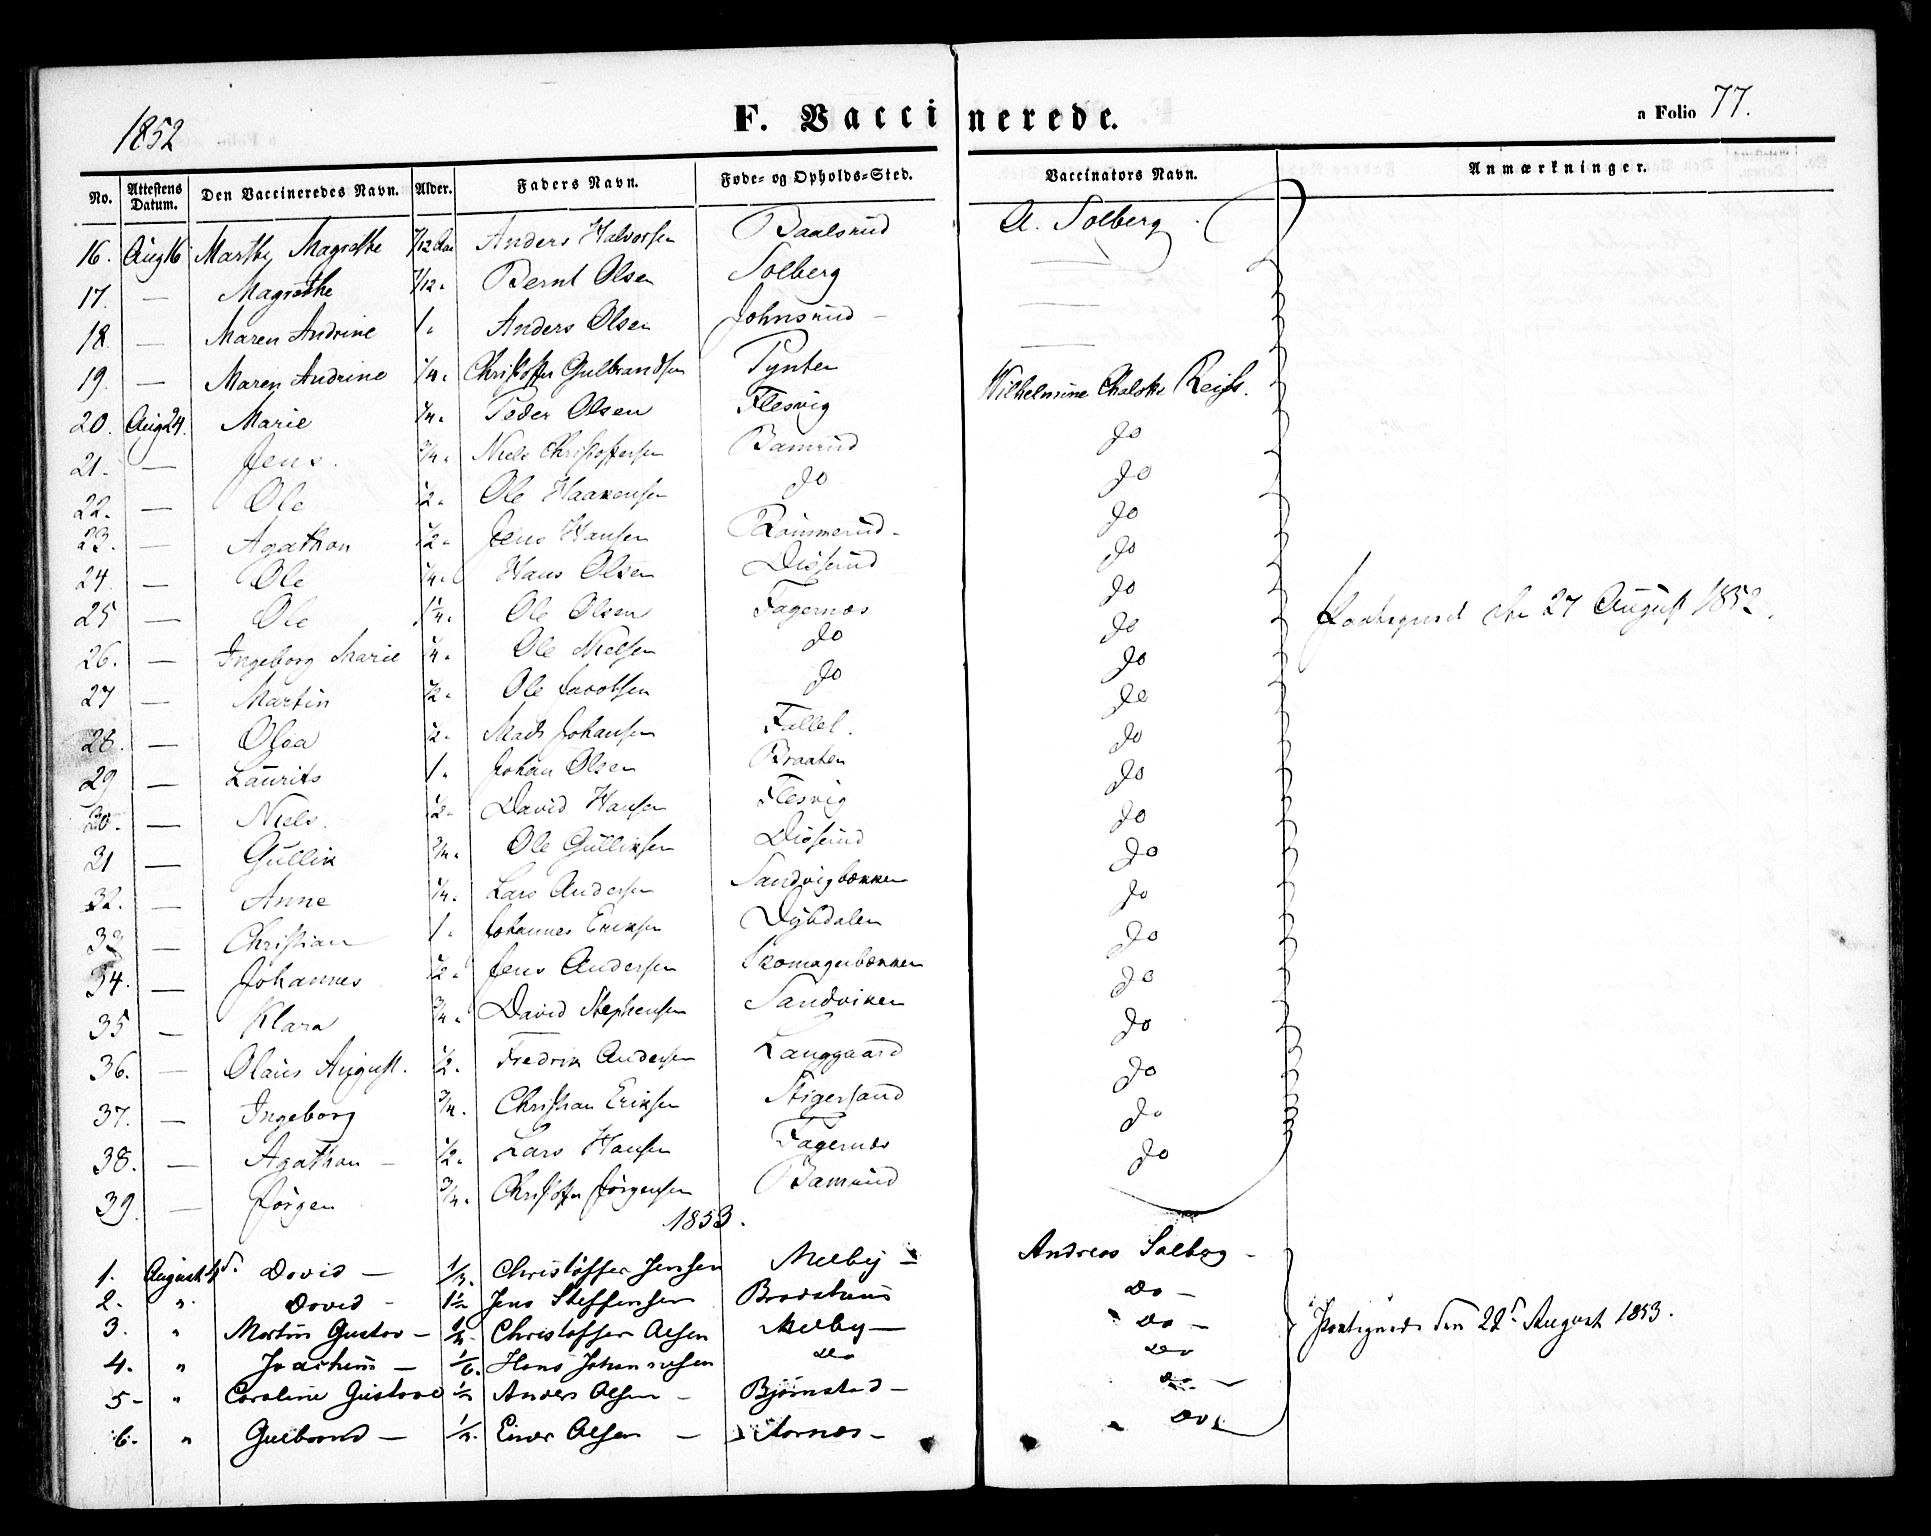 1852
F. Vaccinerede.
a Folio 77.
No. Attestens Datum. Den Vaccineredes Navn. Alder. Faders Navn. Føde- og Opholds-Sted. Vaccinators Navn. Anmærkninger.
16. Aug 16 Marthe Magrethe 7/12 Aar Anders Halvorsen Baalsrud A. Solberg
17. — Magrethe 7/12 " Bernt Olsen Solberg —
18. — Maren Andrine 1 " Anders Olsen Johnsrud — —
19. — Maren Andrine 1/4 " Christoffer Gulbrandsen Tynten —
20. Aug 24. Marie 1/4 " Peder Olsen Flesvig Wilhelmine
21. — Jens. 3/4 " Niels Christoffersen Bamrud do
22. — Ole 1/2 " Ole Haakensen do do
23. — Agathon 1/2 " Jens Hansen Rømmerud - do
24 — Ole 1/4 " Hans Olsen Disserud do
25 — Ole 1 1/4 " Ole Olsen Fagernæs do den 27 August 1852.
26. — Ingeborg Marie 1/4 " Ole Nielsen do do
27 — Martin 1/2 " Ole Jacobsen do do
28. — Olea 1/2 " Mads Johansen Fallet. do
29 — Laurits 1 " Johan Olsen Braaten do
30. — Niels. 1/2 " David Hansen Flesvig do
31 — Gullik 3/4 " Ole Gulliksen Disserud do
32. — Anne 1/4 " Lars Andersen Sandvigbækken do
33 — Christian 1 " Johannes Eriksen Dybdalen do
34. — Johannes 1/2 " Jens Andersen Skomagerbækken do
35 — Klara 3/4 " David Stephensen Sandviken do
36. — Olaus August. 1/2 " Fredrik Andersen Langgaard do
37. — Ingeborg 3/4 " Christian Eriksen Stigersand do
38. — Agathon — 1/2 " Lars Hansen Fagernæs do
39. — Jørgen 3/4 " Christoffer Jørgensen Bamrud do
1853.
1. August 4 David — Christoffer Jensen Melby — Andreas Solberg -
2. " David - 1 1/2 Jens Steffensen Bradshuus Do -
3. " Martin Gustav — Christoffer Olsen Melby — Do - den 22 August 1853.
4. " Joachim — 1/6 " Hans Johannesen Do Do
5 - " Caroline Gustave 1/2 Anders Olsen - Bjørnstad - Do -
6. " Gulbrand — Einer Olsen - Stornæs - " Do